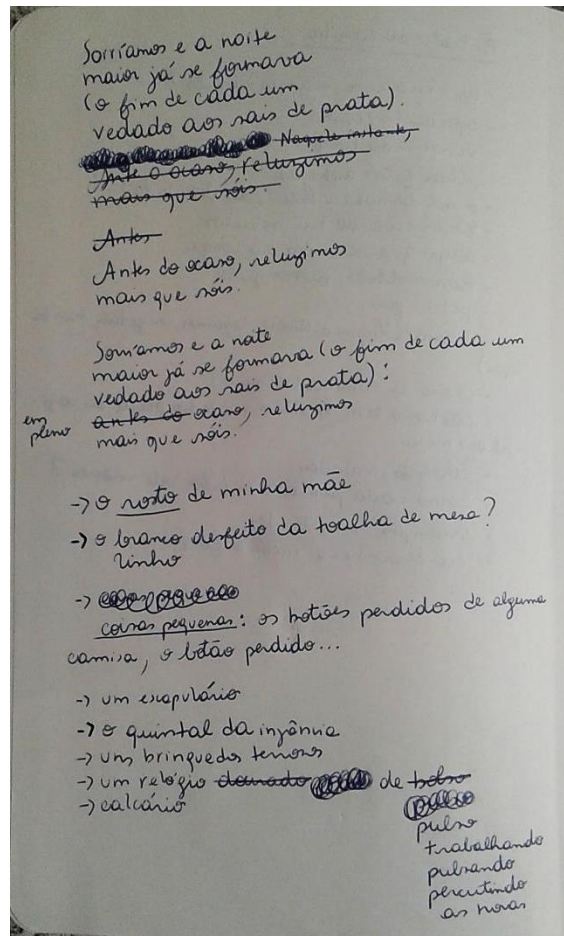 Sorríamos e a noite
maior já se formava
(o fim de cada um
vedado aos sais de prata).
Naquele instante,
Ante o ocaso, reluzimos
mais que sóis.
Antes
Antes do ocaso, reluzimos
mais que sóis.
Sorríamos e a noite
maior já se formava (o fim de cada um
vedado aos sais de prata):
em pleno antes do ocaso, reluzimos
mais que sóis.
-> o rosto de minha mãe
-> o branco desfeito da toalha de mesa?
linho
->
coisas pequenas: os botões perdidos de alguma
camisa, o botão perdido...
-> um escapulário
-> o quintal da infância
-> uns brinquedos terrosos
-> um relógio dourado de bolso
-> calcário
pulso
trabalhando
pulsando
percutindo
as horas